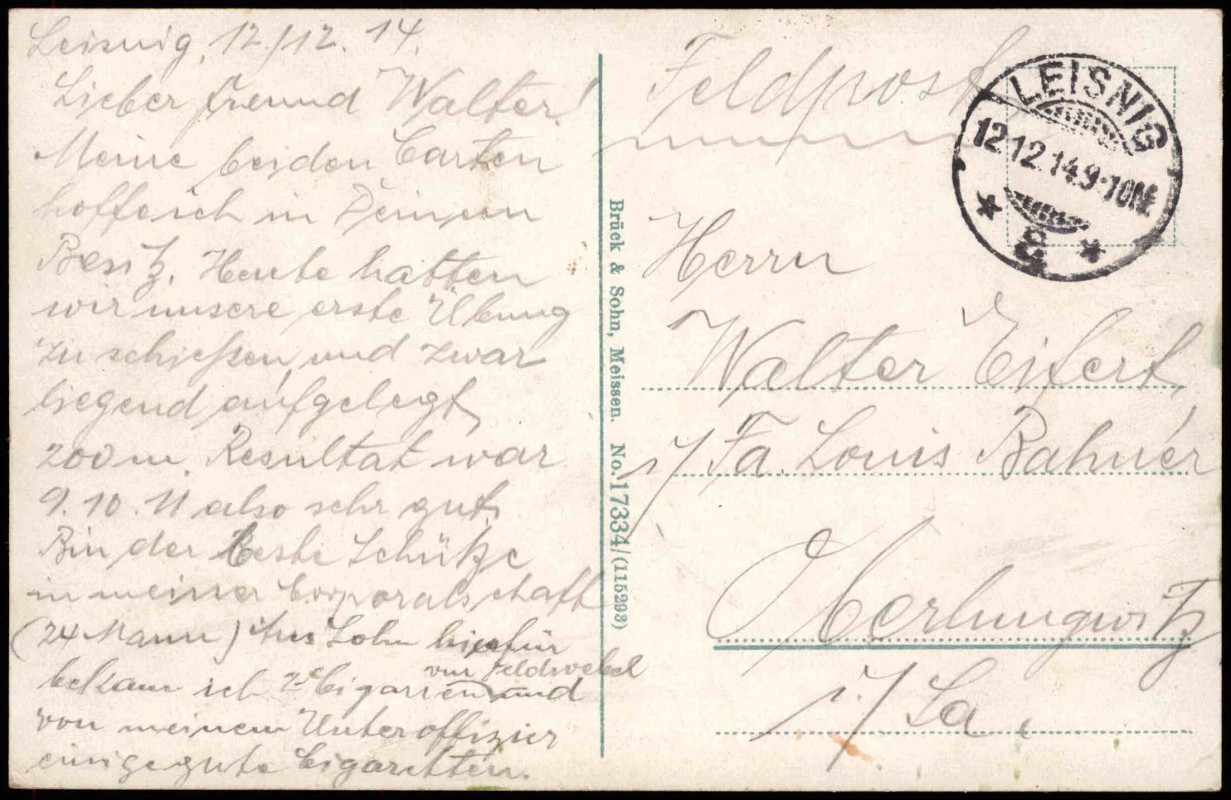 Leisnig, 12/12. 14.
Lieber Freund Walter!
Meine beiden Carten
hoffe ich in Deinem
Besitz. Heute hatten
wir unsere erste Übung
zu schießen, und zwar
liegend aufgelegt
200 m. Resultat war
9. 10. 11 also sehr gut.
Bin der beste Schütze
in meiner Corporalschaft
(24 Mann) Als Lohn hierfür
vom Feldwebel
bekam ich 2 Cigarren und
von meinem Unteroffizier
einige gute Cigaretten.
Brück & Sohn, Meissen. No. 17334/(115293)
Feldpost
LEISNIG
12.12.14.9-10N.
* c *
Herrn
Walter Eifert,
i/ Fa. Louis Bahner
Oberlungwitz
i/ Sa.